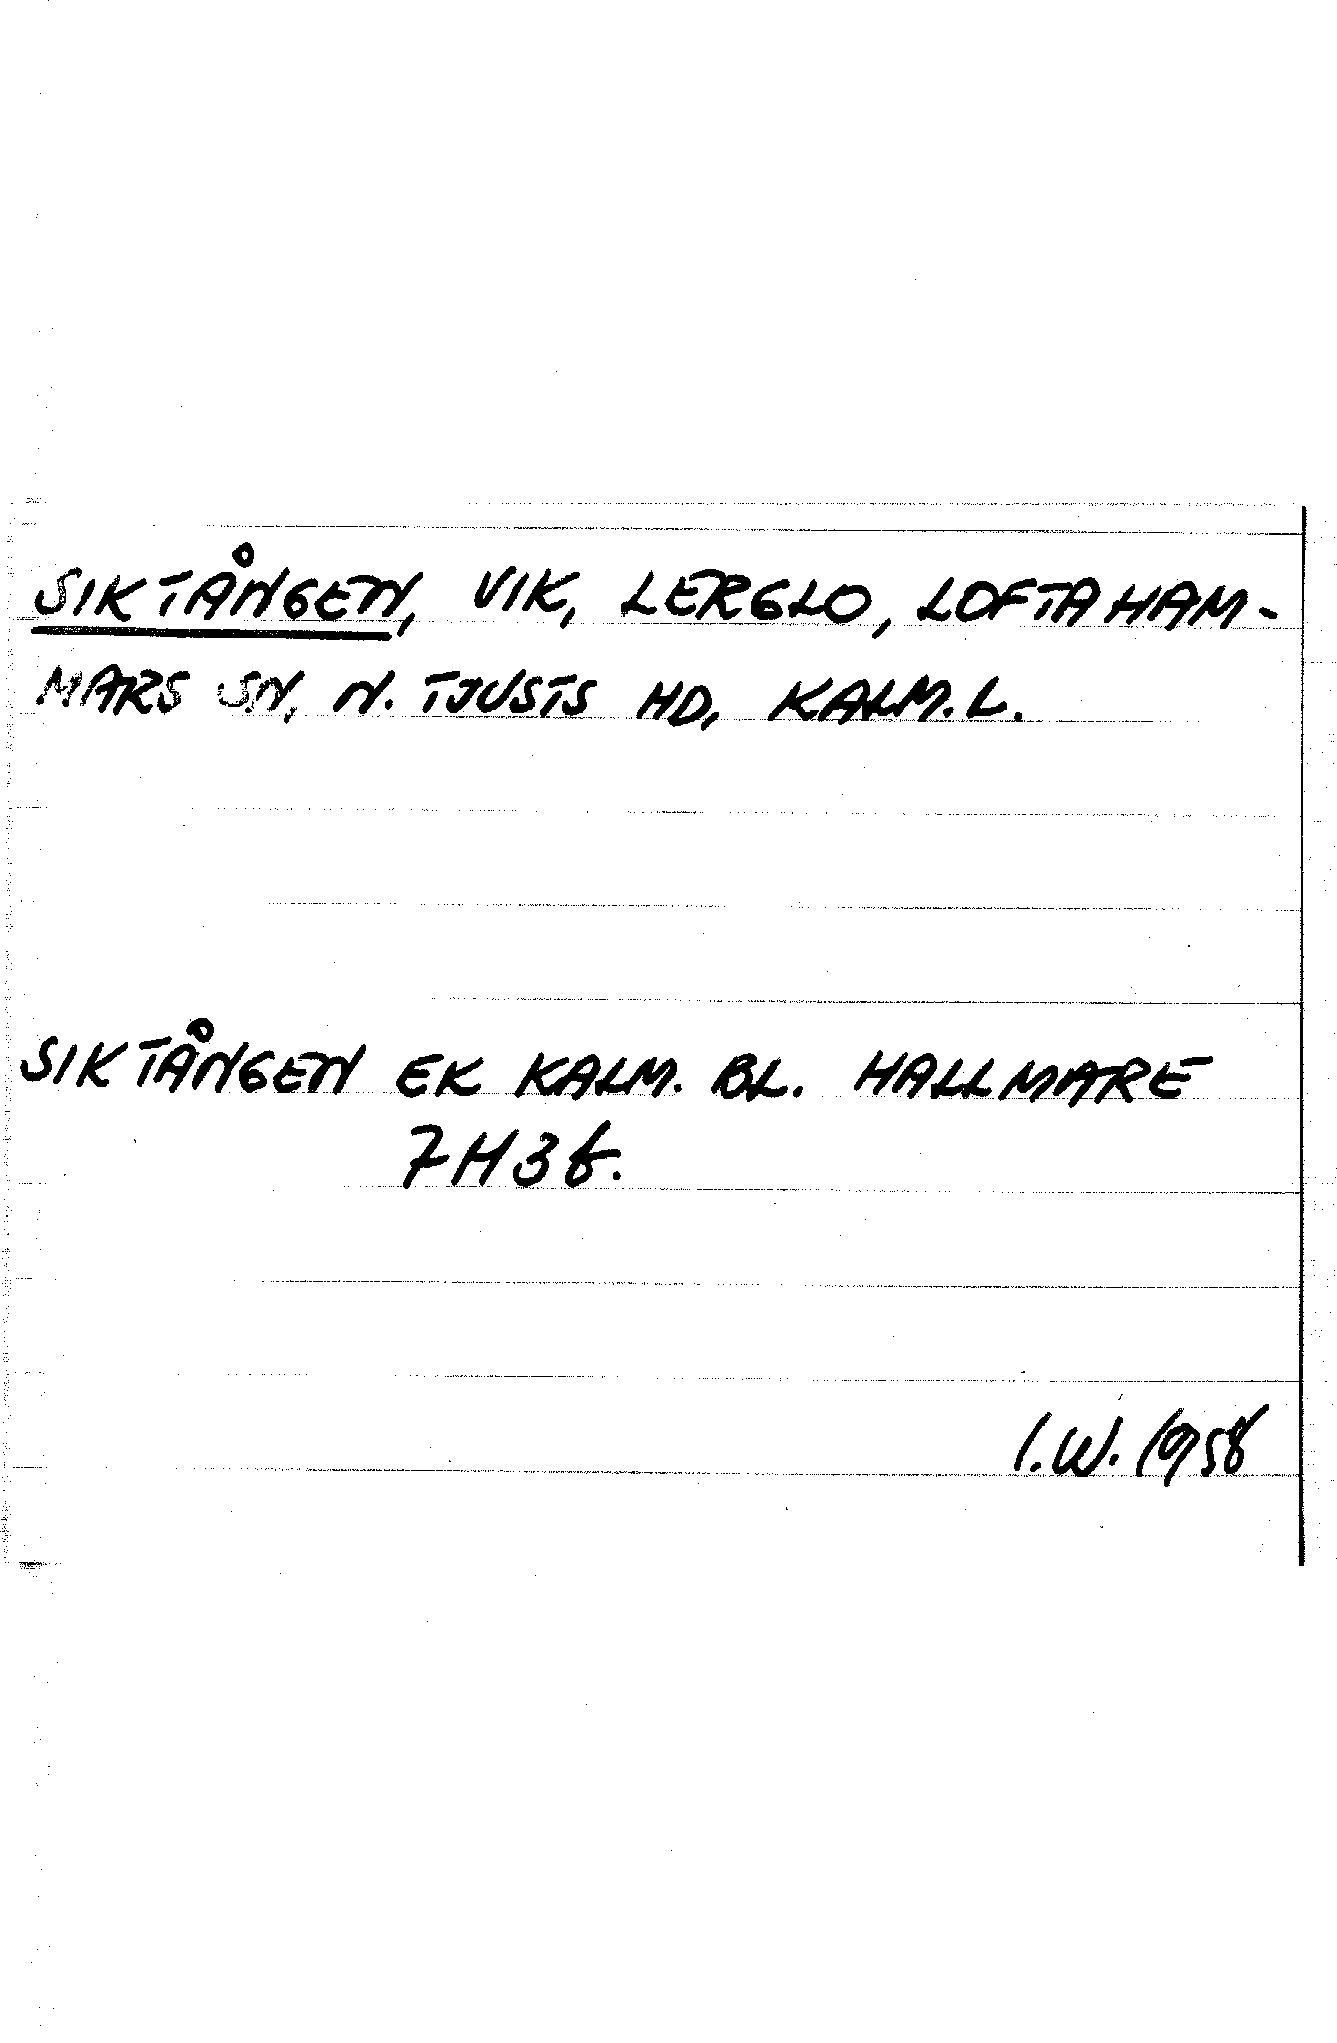 SIKTÅNGEN, VIK, LERGLO, LOFTAHAM-
MARS SN, N. TJUSTS HD, KALM. L.
SIKTÅNGEN EK KALM. BL. HALLMARE
7H3f.
I.W. 1958